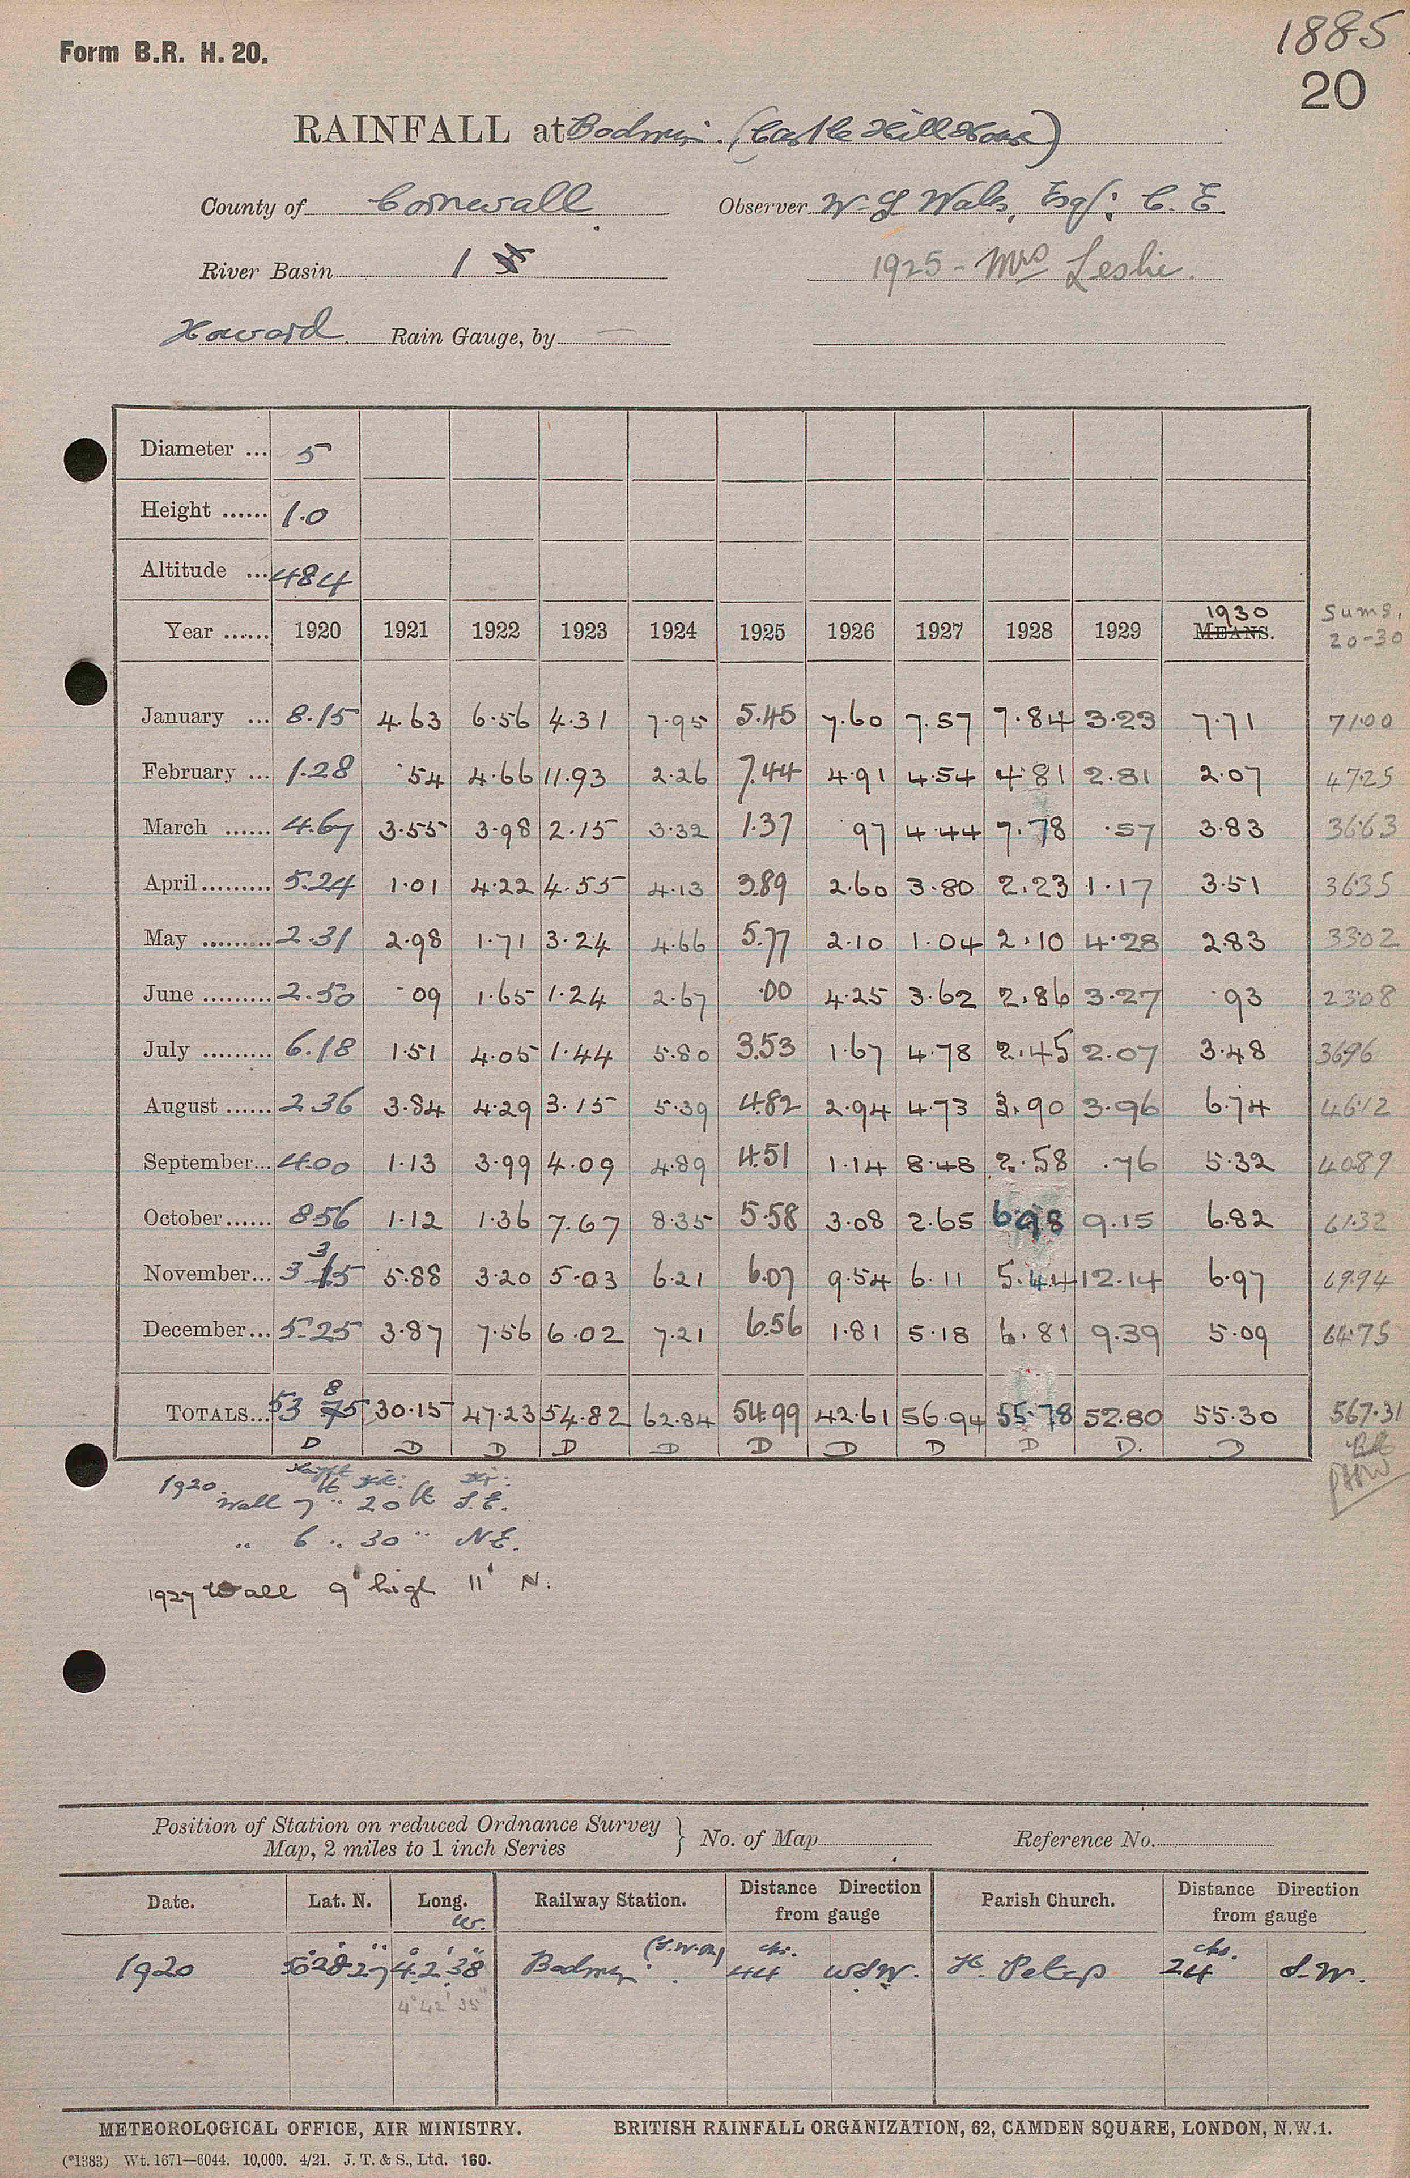 1885
Form B.R. H. 20.
20
RAINFALL at Bodmin. (Castle Hill House)
County of Cornwall Observer W. L. Wales, Esq: C. E
River Basin 1 1925 - Mrs Leslie.
Howard. Rain Gauge, by —
Diameter ... 5
Height ...... 1.0
Altitude ... 484
1930 Sums.
Year ...... 1920 1921 1922 1923 1924 1925 1926 1927 1928 1929 MEANS. 20-30
January ... 8.15 4.63 6.56 4.31 7.95 5.45 7.60 7.57 7.84 3.23 7.71 71.00
February ... 1.28 .54 4.66 11.93 2.26 7.44 4.91 4.54 4.81 2.81 2.07 47.25
March ...... 4.67 3.55 3.98 2.15 3.32 1.37 .97 4.44 7.78 .57 3.83 36.63
April......... 5.24 1.01 4.22 4.55 4.13 3.89 2.60 3.80 2.23 1.17 3.51 36.35
May ......... 2.31 2.98 1.71 3.24 4.66 5.77 2.10 1.04 2.10 4.28 2.83 33.02
June ......... 2.50 .09 1.65 1.24 2.67 .00 4.25 3.62 2.86 3.27 .93 23.08
July ......... 6.18 1.51 4.05 1.44 5.80 3.53 1.67 4.78 2.45 2.07 3.48 36.96
August ...... 2.36 3.84 4.29 3.15 5.39 4.82 2.94 4.73 3.90 3.96 6.74 46.12
September... 4.00 1.13 3.99 4.09 4.89 4.51 1.14 8.48 2.58 .76 5.32 40.89
October...... 8.56 1.12 1.36 7.67 8.35 5.58 3.08 2.65 6.98 9.15 6.82 61.32
3
November... 3.15 5.88 3.20 5.03 6.21 6.07 9.54 6.11 5.44 12.14 6.97 69.94
December... 5.25 3.87 7.56 6.02 7.21 6.56 1.81 5.18 6.81 9.39 5.09 64.75
8
TOTALS... 53 75 30.15 47.23 54.82 62.84 54.99 42.61 56.94 55.78 52.80 55.30 567.31
D D D D D D D D D D. D
1920.
Wall 7 " 20 ft S.E.
" 6 " 30 " N.E.
1927 Wall 9' high 11' N.
Position of Station on reduced Ordnance Survey
Map, 2 miles to 1 inch Series } No. of Map Reference No.
Date. Lat. N. Long. W. Railway Station. Distance Direction from gauge Parish Church. Distance Direction from gauge
1920 50° 28' 27" 4° 2' 38" Bodmin (G.W.R) chs. 44 WSW. St. Petrocs chs. 24 S.W.
4° 42' 35"
METEOROLOGICAL OFFICE, AIR MINISTRY. BRITISH RAINFALL ORGANIZATION, 62, CAMDEN SQUARE, LONDON, N.W.1.
(*1383) Wt. 1671—6044. 10,000. 4/21. J. T. & S., Ltd. 160.